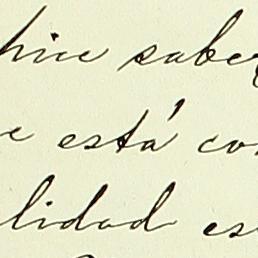 hice saber
e está co
lidad es